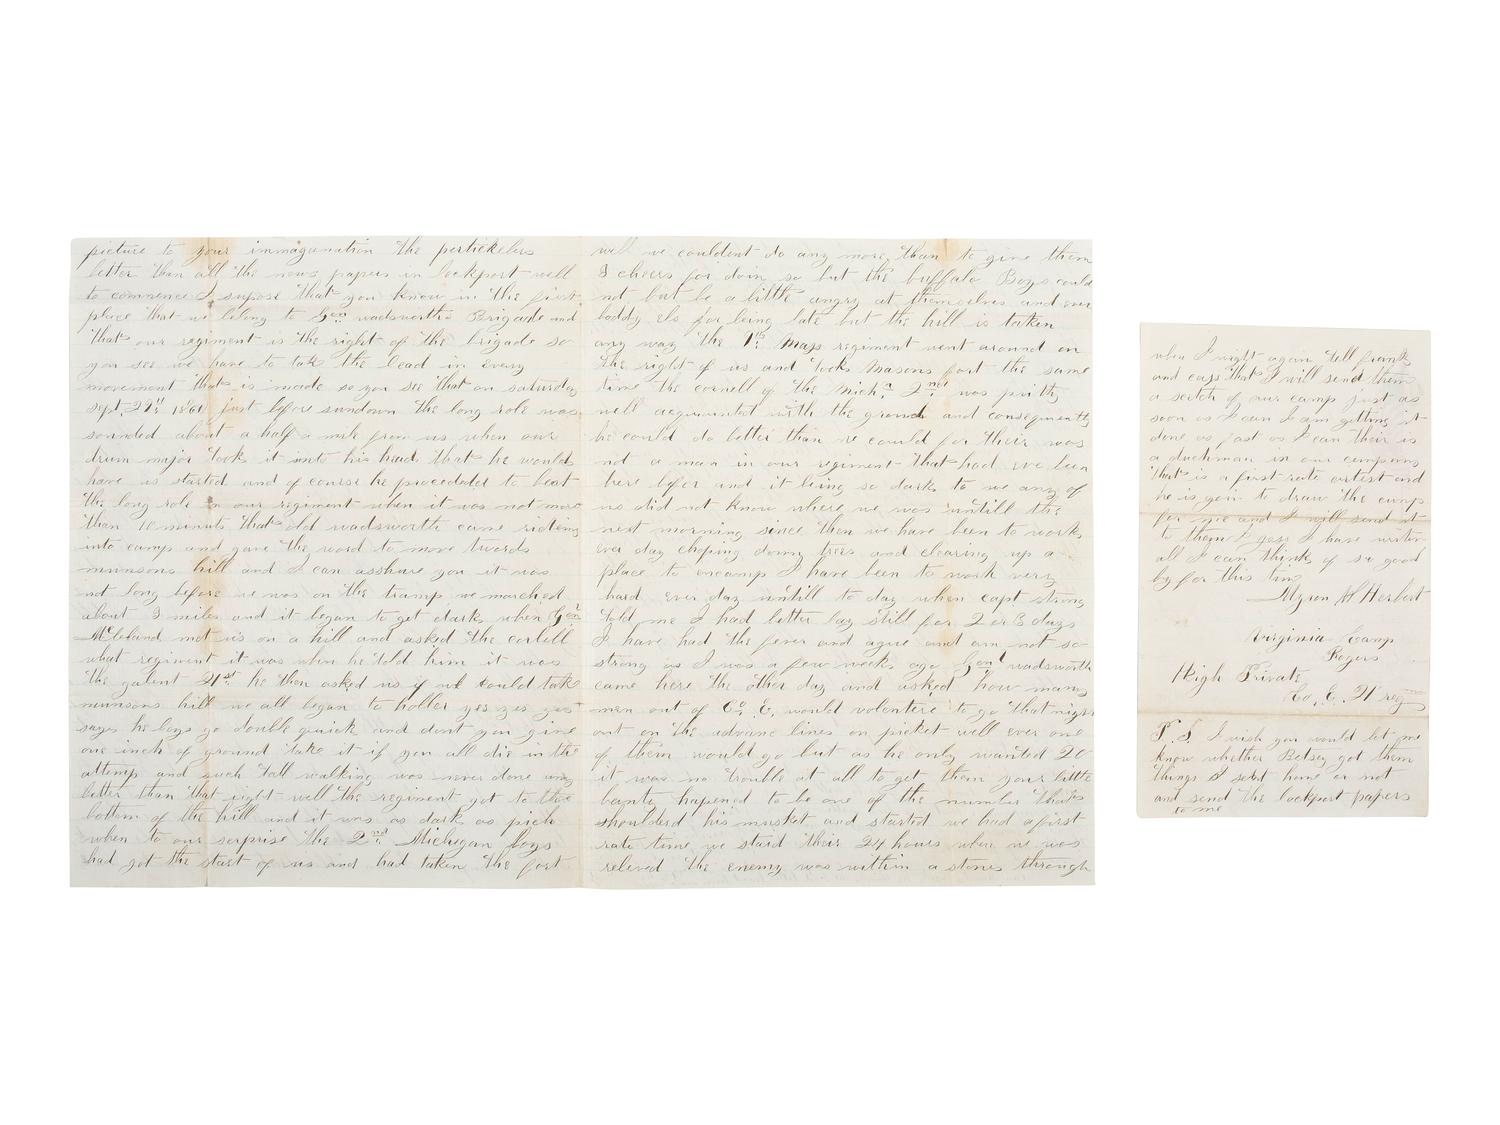 picture to your immagunation the pertickelers
letter than all the news papers in lockport well
to commence I supose that you know in the first
place that we belong to Genl wadsworths Brigade and
that our regiment is the right of the brigade so
you see we have to take the lead in every
movement that is made so you see that on saturday
sept. 29th 1861 just before sundown the long role was
sounded about a half a mile from us when our
drum major took it into his head that he would
have us started and of course he proceeded to beat
the long role in our regiment when it was not more
than 10 minuts that old wadsworth came rideing
into camp and gave the word to move twords
munsons hill and I can asshure you it was
not long before we was on the tramp we marched
about 3 miles and it began to get dark when Genl
McCleland met us on a hill and asked the cornell
what regiment it was when he told him it was
the galent 21st he then asked us if we could take
munsons hill we all began to holler yes yes yes
says he boys go double quick and dont you give
one inch of ground take it if you all die in the
attemp and such tall walking was never done any
better than that night well the regiment got to the
bottom of the hill and it was as dark as pich
when to our surprise the 2nd Michegan boys
had got the start of us and had taken the fort
well we couldent do any more than to give them
3 cheers for doin so but the buffalo Boys could
not but be a little angry at themselves and evry
boddy els for being late but the hill is taken
any way the 9th Mass regiment went around on
the right of us and took Masons fort the same
time the cornell of the Mich.n 2nd was prity
well acquainted with the ground and consequently
he could do better than we could for their was
not a man in our regiment that had eve been
here befor and it being so dark to we any of
us did not know where we was untill the
next morning since then we have been to work
ever day choping down trees and clearing up a
place to encamp I have been to work very
hard ever day untill to day when capt strong
told me I had better lay still for 2 or 3 days
I have had the fever and ague and am not so
strong as I was a few weeks ago Genl wadsworth
came here the other day and asked how many
men out of Co. C, would volentere to go that night
out on the advance lines on picket well ever one
of them would go but as he only wanted 20
it was no trouble at all to get them your little
banty hapened to be one of the number thats
shoulderd his musket and started we had a first
rate time we staid their 24 hours when we was
releived the enemy was within a stones through
when I right again tell frank
and cass that I will send them
a scitch of our camp just as
soon as I can I am getting it
done as fast as I can their is
a duchman in our company
that is a first rate artest and
he is goin to draw the camp
for me and I will send it
to them I gess I have writen
all I can think of so good
by for this time
Myron H Herbert
Virginia Camp
Rogers
High Private
Co, C, 21 reg
P. S. I wish you would let me
know whether Betsey got them
things I sent home or not
and send the lockport papers
to me